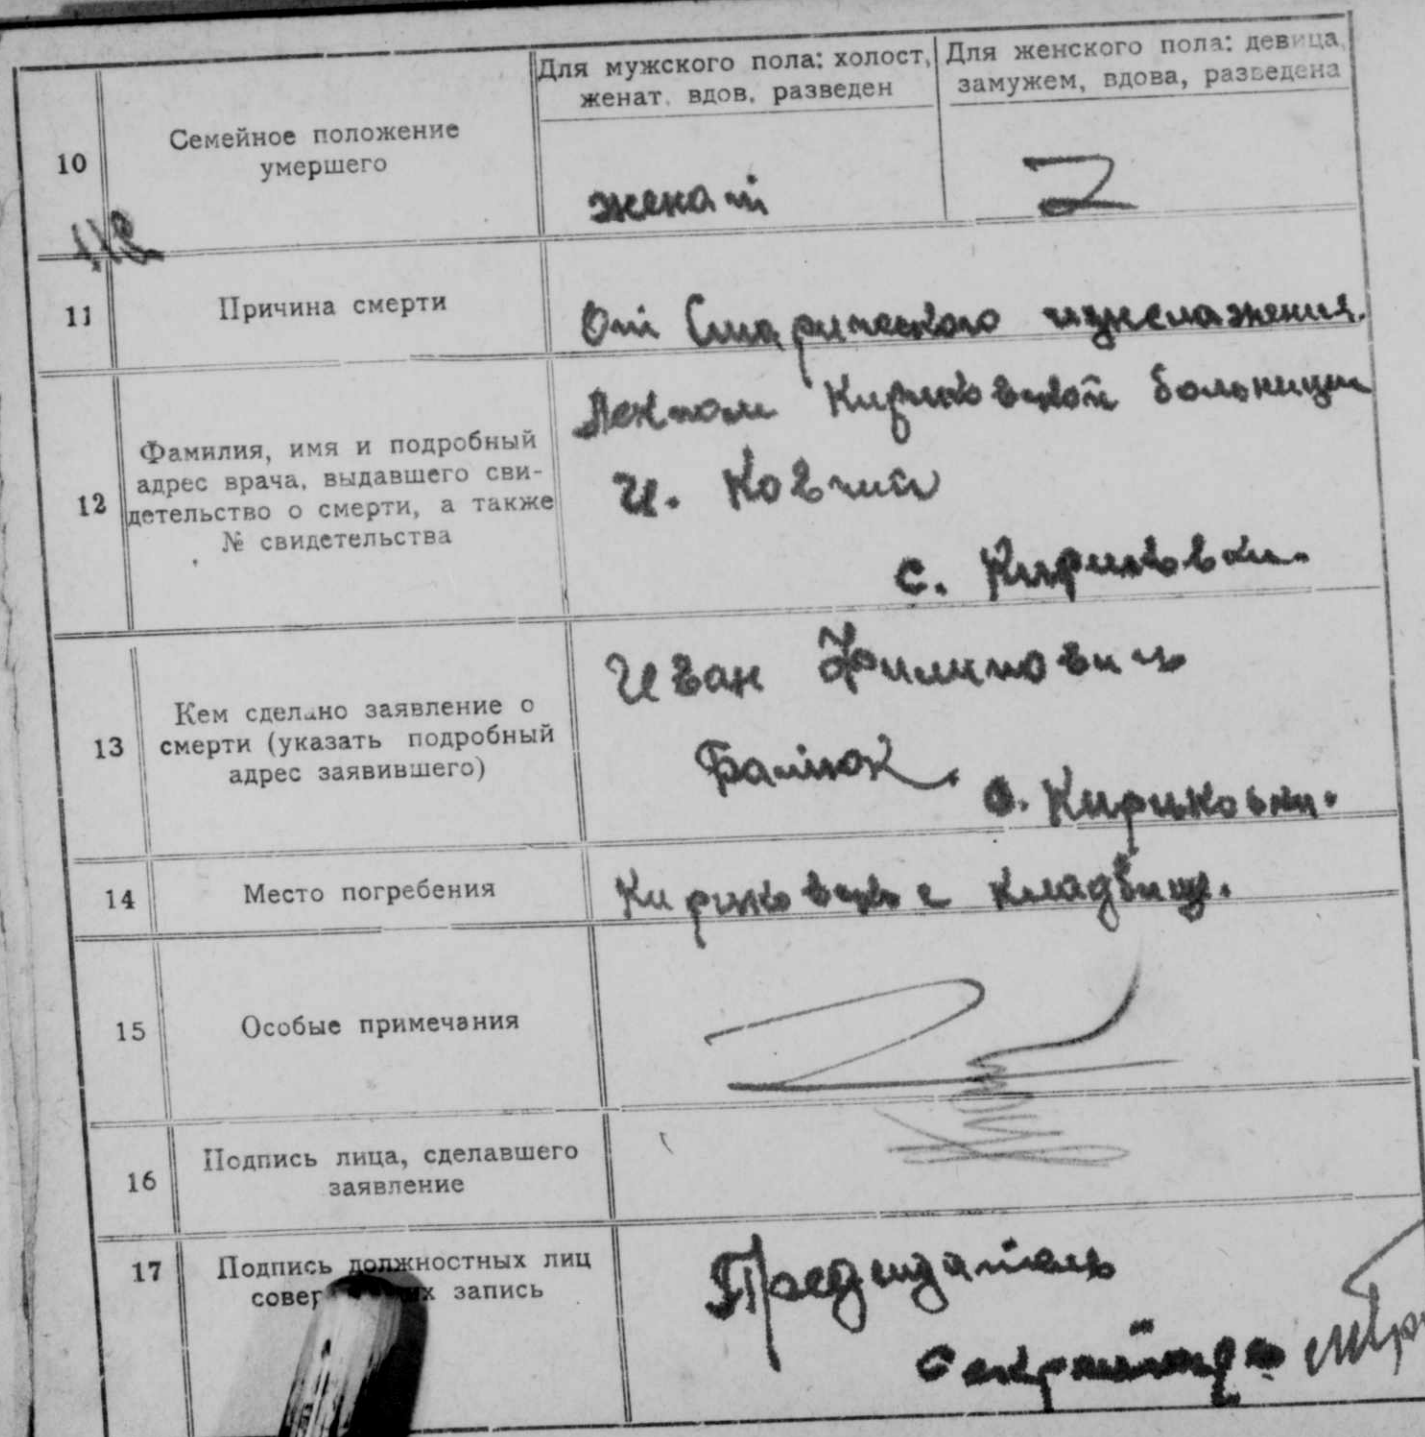 Для мужского пола: холост,
женат, вдов, разведен
Для женского пола: девица,
замужем, вдова, разведена
10
Семейное положение
умершего
женат
Z
11
Причина смерти
От Старического изнеможения.
12
Фамилия, имя и подробный
адрес врача, выдавшего сви-
детельство о смерти, а также
№ свидетельства
Кириковской больницы
И. Ковчий
с. Кириковки.
13
Кем сделано заявление о
смерти (указать подробный
адрес заявившего)
Иван Филипович
с. Кириковки.
14
Место погребения
Кириковское кладбище.
15
Особые примечания
16
Подпись лица, сделавшего
заявление
17
Подпись должностных лиц
запись
Председатель
Секретарь